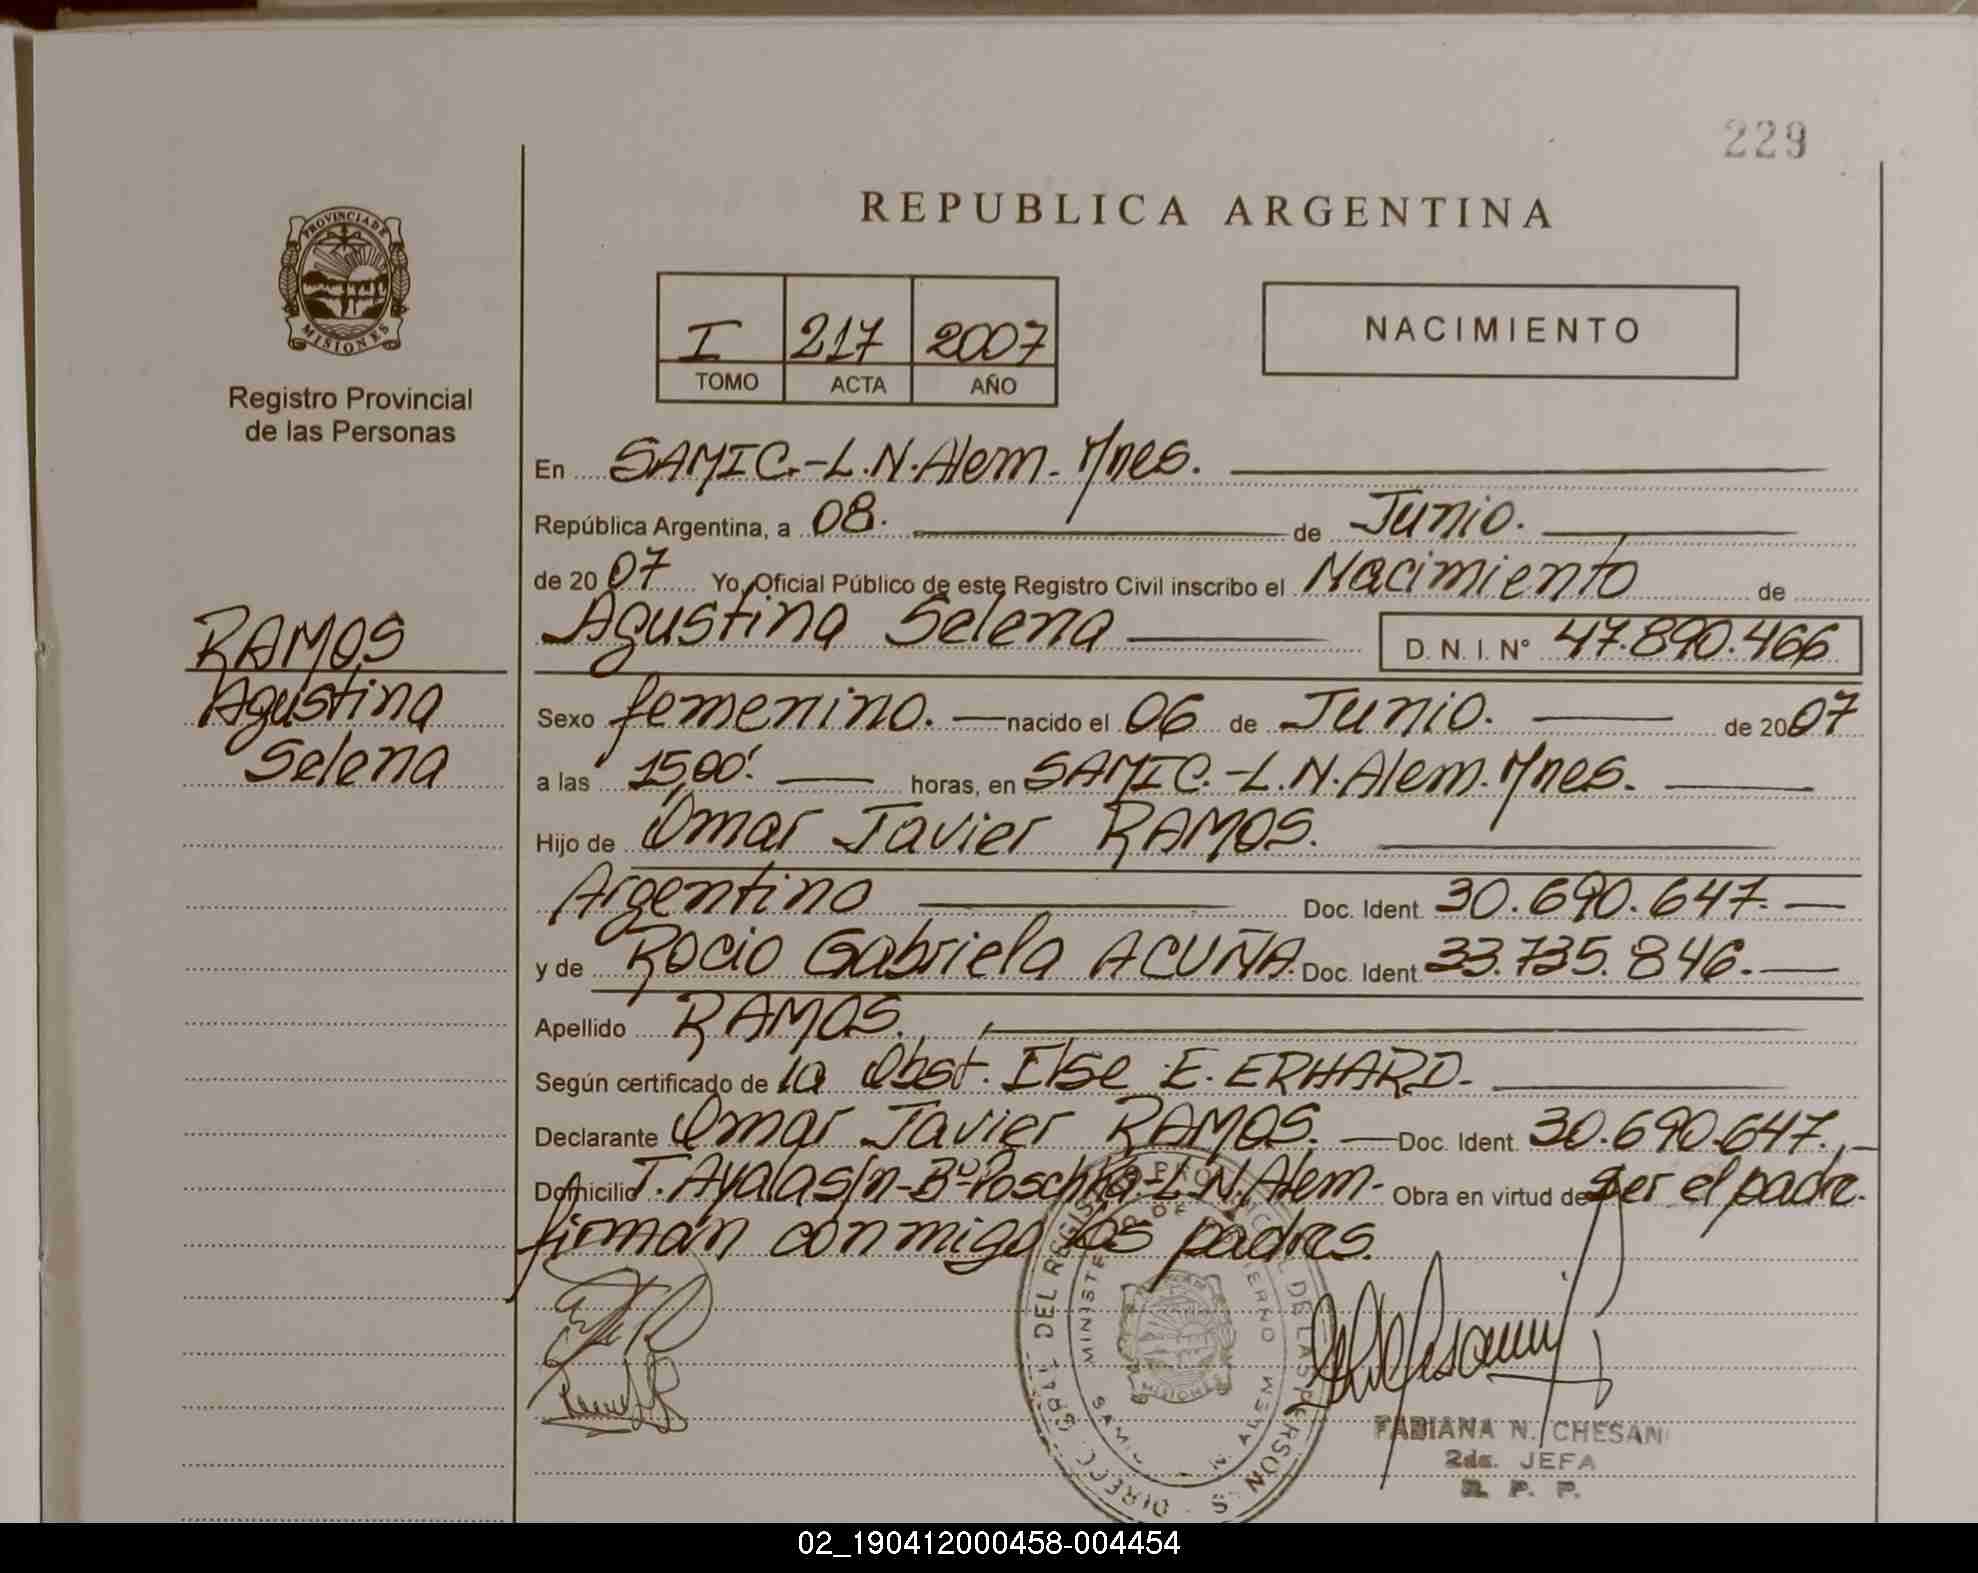 229
PROVINCIA DE
MISIONES
Registro Provincial
de las Personas
REPUBLICA ARGENTINA
I 217 2007
TOMO ACTA AÑO
NACIMIENTO
En SAMIC.-L.N.Alem. Mnes.
República Argentina, a 08. de Junio.
de 2007 Yo, Oficial Público de este Registro Civil inscribo el Nacimiento de
RAMOS
Agustina
Selena
Agustina Selena D. N. I. N° 47.890.466
Sexo femenino. nacido el 06 de Junio. de 2007
a las 15,00'. horas, en SAMIC.-L.N.Alem. Mnes.
Hijo de Omar Javier RAMOS.
Argentino Doc. Ident. 30.690.647.
y de Rocio Gabriela ACUÑA. Doc. Ident. 33.735.846.
Apellido RAMOS.
Según certificado de la Obst. Else E. ERHARD.
Declarante Omar Javier RAMOS. Doc. Ident. 30.690.647.
Domicilio T. Ayala s/n-Bº Poschka-L.N.Alem. Obra en virtud de ser el padre.
firman conmigo los padres.
FABIANA N. CHESANI
2da. JEFA
R. P. P.
02_190412000458-004454